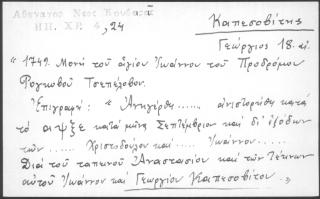 Αθανατος Νεος Κουβαρᾶ
ΗΠ. ΧΡ. 4, 24
Καπεσοβίτης
Γεώργιος 18. αἰ.
" 1749. Μονή τοῦ ἁγίου Ἰωάννου τοῦ Προδρόμου
Ρογκοβοῦ Τσεπέλοβον.
Ἐπιγραφή: " Ἀνηγέρθη...... ἀνιστορήθη κατά
τό αψξε κατά μῆνα Σεπτέμβριον καί δι' ἐξόδων
τῶν ..... Χριστοδούλου καί ..... Ἰωάννου.....
Διά τοῦ ταπεινοῦ Ἀναστασίου καί τῶν τέκνων
αὐτοῦ Ἰωάννου καί Γεωργίου Καπεσοβίτου. "